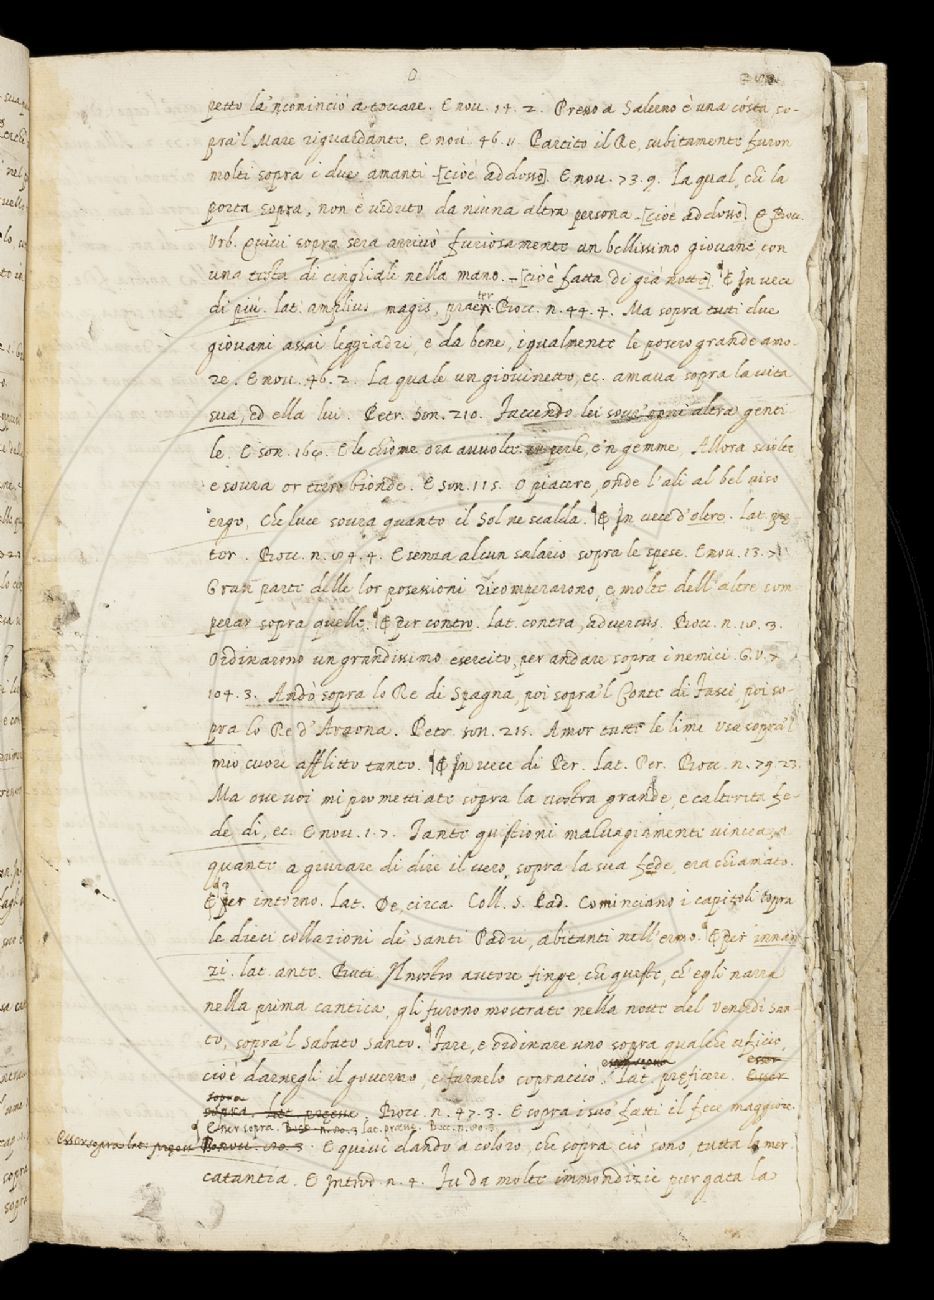 petto la 'ncominciò a toccare. E nov. 14. 2. Presso a Salerno è una costa so-
pra 'l Mare riguardante. E nov. 46. 11. Partito il Re, subitamente furon
molti sopra i due amanti -[cioè addosso]. E nov. 73. 9. La qual, chi la
porta sopra, non è veduto da niuna altra persona -[cioè addosso]. E Bocc.
Urb. Quivi sopra sera arrivò furiosamente un bellissimo giovane con
una testa di cinghiale nella mano. -[cioè fatta di già notte]. ¶ E In vece
di più. lat. amplius magis, praeter. Bocc. n. 44. 4. Ma sopra tutti due
giovani assai leggiadri, e da bene, igualmente le posero grande amo-
re. E nov. 46. 2. La quale un giovinetto, ec. amava sopra la vita
sua, ed ella lui. Petr. Son. 210. Facendo lei sovr' ogni altra genti-
le. E son. 160. E le chiome ora avvolte in perle, e 'n gemme, Allora sciolte
e sovra or terso bionde. E son. 115. O piacere, onde l' ali al bel viso
ergo, Che luce sovra quanto il Sol ne scalda. ¶ E In vece d' oltre. Lat. prę-
ter. Bocc. n. 84. 4. E senza alcun salario sopra le spese. E nov. 13. 7.
Gran parte delle lor possessioni ricomperarono, e molte dell' altre com-
perar sopra quelle. ¶ E per contro. lat. contra, adversus. Bocc. n. 18. 3.
Ordinarono un grandissimo esercito, per andare sopra i nemici. G. V. 7.
104. 3. Andò sopra lo Re di Spagna, poi sopra 'l Conte di Fusci, poi so-
pra lo Re d' Araona. Petr. son. 215. Amor tutte le lime Usa sopra 'l
mio cuore afflitto tanto. ¶ E In vece di Per. Lat. Per. Bocc. n. 79. 23.
Ma ove voi mi promettiate sopra la vostra grande, e calterita fe-
de di, ec. E nov. 1. 7. Tante quistioni malvagiamente vincea, a
quante a giurare di dire il vero, sopra la sua fede, era chiamato.
¶ E per intorno. Lat. De, circa. Coll. S. Pad. Cominciano i capitoli sopra
le dieci collazioni de' Santi Padri, abitanti nell' ermo. ¶ E per innan-
zi. lat. ante. Buti. Il nostro autore finge, che queste, ch' egli narra
nella prima cantica, gli furono mostrate nella notte del Venerdì San-
to, sopra 'l Sabato Santo. ¶ Fare, e ordinare uno sopra qualche uficio,
cioè darnegli il governo, e farnelo sopracciò. Lat. pręficere. Esser
sopra. lat. pręesse. Bocc. n. 47. 3. E sopra i suo' fatti il fece maggiore.
Esser sopra. Bocc. n. 80. 3 lat. pręesse. Bocc. n. 80. 3.
Esser sopra lat. pręesse Bo. nov. 80. 3 E quivi dando a coloro, che sopra ciò sono, tutta la mer-
catantia. E Introd. n. 4. Fu da molte immondizie purgata la